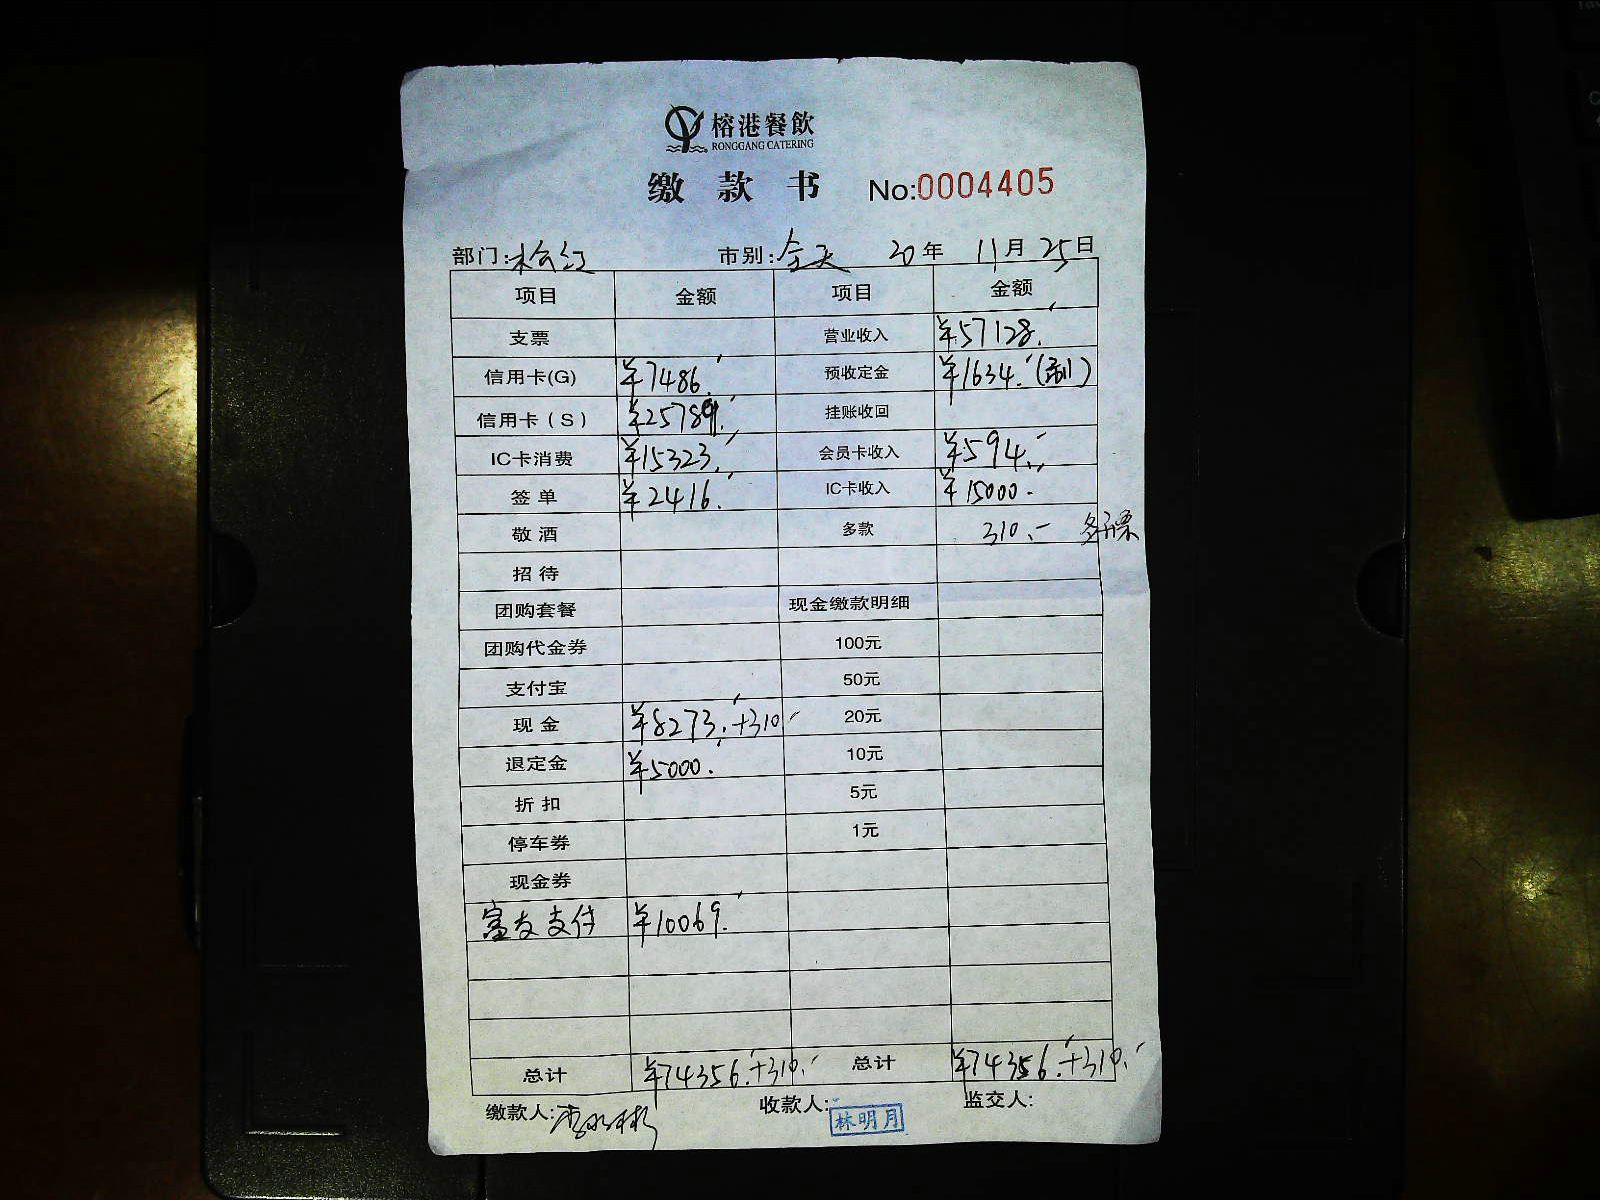 榕港餐飲
RONGGANG CATERING
缴款书 No:0004405
部门: 市别:全天 20年 11月 25日
项目 金额 项目 金额
支票 营业收入 ¥57128.
信用卡(G) ¥7486. 预收定金 ¥1634.
信用卡(S) ¥25789. 挂账收回
IC卡消费 ¥15323. 会员卡收入 ¥594.
签单 ¥2416. IC卡收入 ¥15000.
敬酒 多款 310.-
招待
团购套餐 现金缴款明细
团购代金券 100元
支付宝 50元
现金 ¥8273.+310 20元
退定金 ¥5000. 10元
折扣 5元
停车券 1元
现金券
富友支付 ¥10069.
总计 ¥74356.+310. 总计 ¥74356.+310.
缴款人: 收款人:林明月 监交人: